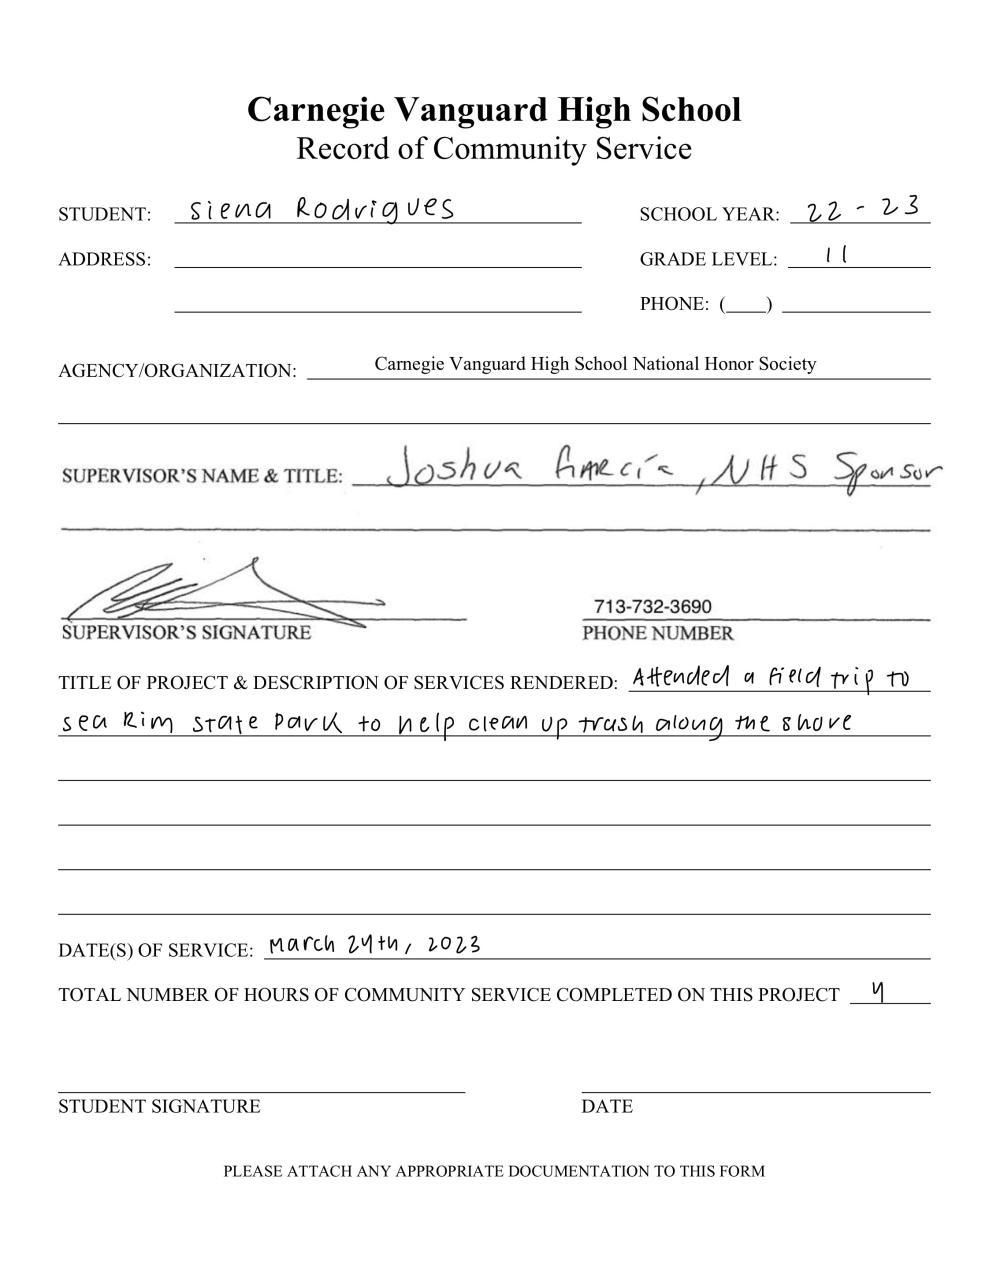 Carnegie Vanguard High School
Record of Community Service
STUDENT: Siena Rodrigues SCHOOL YEAR: 22 - 23
ADDRESS: GRADE LEVEL: 11
PHONE: (____)
AGENCY/ORGANIZATION: Carnegie Vanguard High School National Honor Society
SUPERVISOR'S NAME & TITLE: Joshua Garcia, NHS Sponsor
713-732-3690
SUPERVISOR'S SIGNATURE PHONE NUMBER
TITLE OF PROJECT & DESCRIPTION OF SERVICES RENDERED: Attended a field trip to
sea Rim State Park to help clean up trash along the shore
DATE(S) OF SERVICE: March 24th, 2023
TOTAL NUMBER OF HOURS OF COMMUNITY SERVICE COMPLETED ON THIS PROJECT 4
STUDENT SIGNATURE DATE
PLEASE ATTACH ANY APPROPRIATE DOCUMENTATION TO THIS FORM